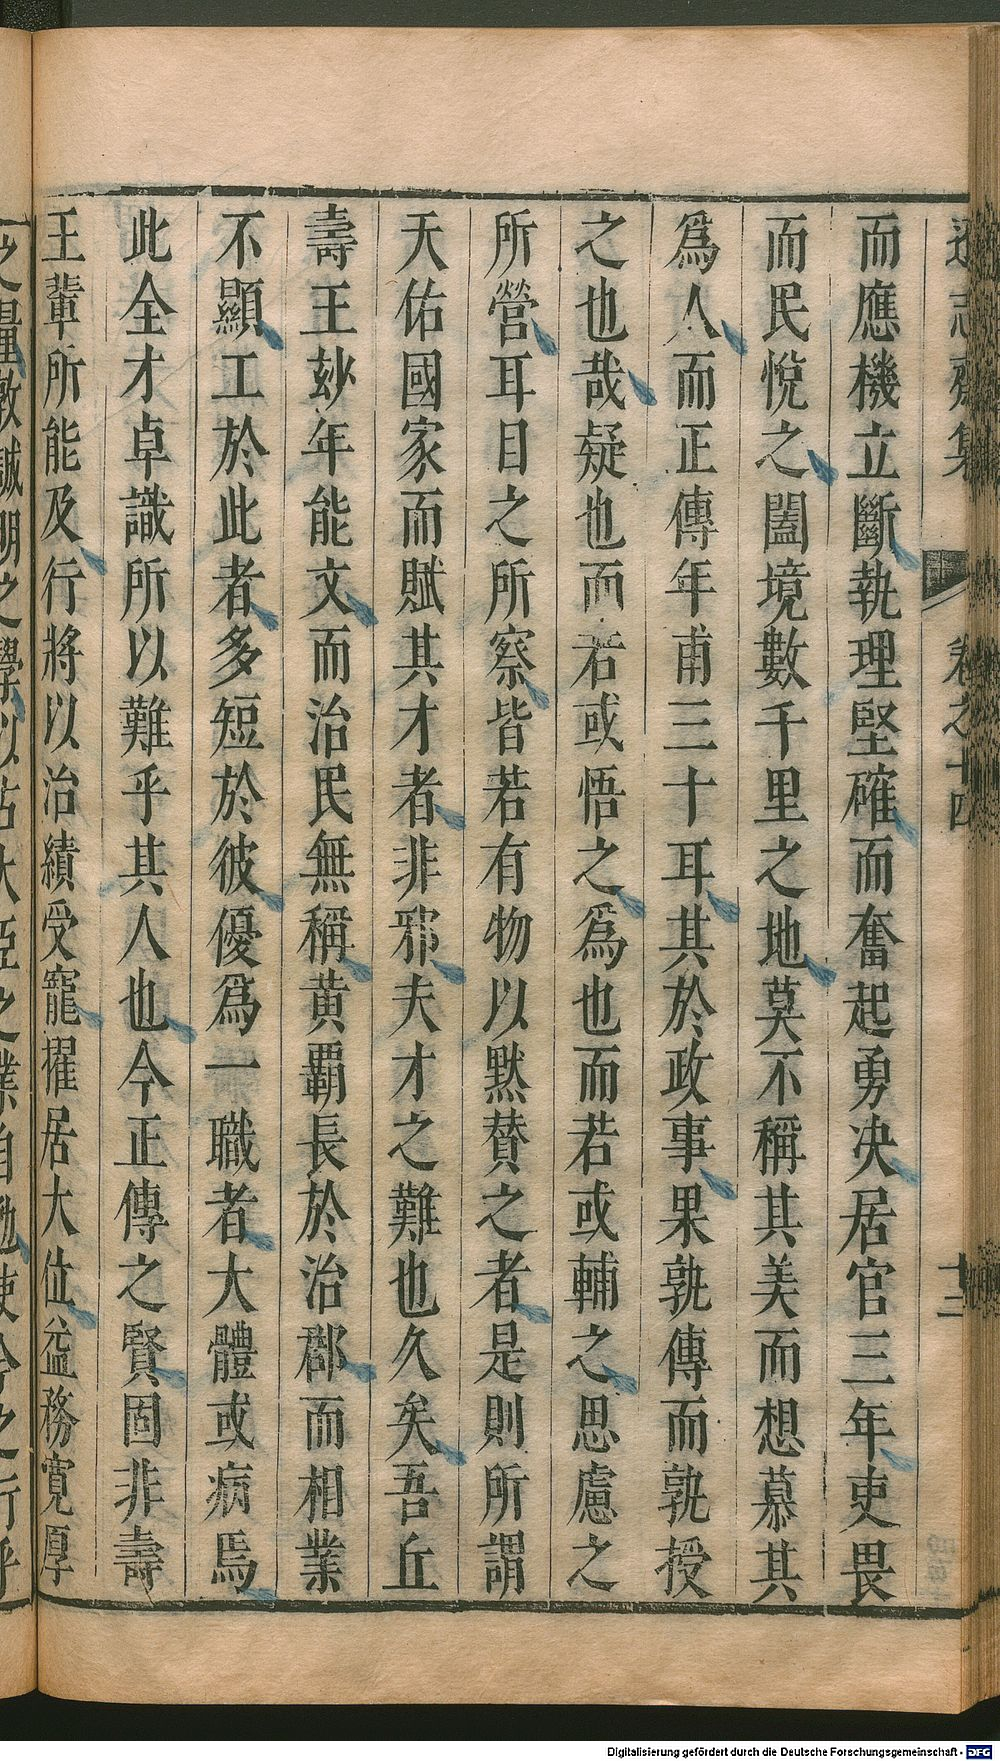 遜志齋集 卷之十四 十三
而應機立斷執理堅確而奮起勇决居官三年吏畏
而民悅之闔境數千里之地莫不稱其美而想慕其
爲人而正傳年甫三十耳其於政事果孰傳而孰授
之也哉疑也而若或悟之爲也而若或輔之思慮之
所營耳目之所察皆若有物以默賛之者是則所謂
天佑國家而賦其才者非邪夫才之難也久矣吾丘
壽王玅年能文而治民無稱黄覇長於治郡而相業
不顯工於此者多短於彼優爲一職者大體或病焉
此全才卓識所以難乎其人也今正傳之賢固非壽
王輩所能及行將以治績受寵擢居大位益務寛厚
之量敦誠明之學以佔大臣之業自勉使今之行乎
Digitalisierung gefördert durch die Deutsche Forschungsgemeinschaft - DFG